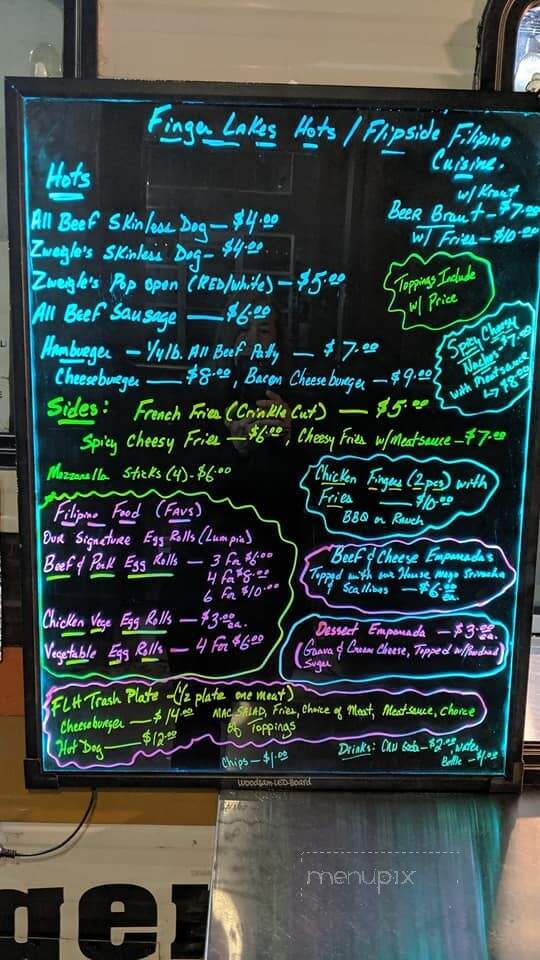 Finger Lakes Hots / Flipside Filipino
Cuisine.
Hots
All Beef Skinless Dog — $4.00
Zweigle's Skinless Dog — $4.00
Zweigle's Pop open (RED/White) — $5.00
All Beef Sausage — $6.00
Hamburger — 1/4 lb. All Beef Patty — $7.00
Cheeseburger — $8.00, Bacon Cheeseburger — $9.00
w/ Kraut
Beer Braut — $7.00
w/ Fries — $10.00
Toppings Include
w/ Price
Spicy Cheesy
Nachos $7.00
with Meatsauce
↳ $8.00
Sides: French Fries (Crinkle Cut) — $5.00
Spicy Cheesy Fries — $6.00, Cheesy Fries w/Meatsauce — $7.00
Mozzarella Sticks (4) - $6.00
Chicken Fingers (2pcs) with
Fries — $10.00
BBQ or Ranch
Filipino Food (FAVS)
Our Signature Egg Rolls (Lumpia)
Beef & Pork Egg Rolls — 3 For $6.00
4 For $8.00
6 For $10.00
Chicken Vege Egg Rolls — $3.00 ea.
Vegetable Egg Rolls — 4 For $6.00
Beef & Cheese Empanadas
Topped with our House Mayo Sriracha
& Scallions — $6.00 ea.
Dessert Empanada — $3.00 ea.
(Guava & Cream Cheese, Topped w/Powdered
Sugar
FLH Trash Plate - (1/2 plate one meat)
Cheeseburger — $14.00 MAC SALAD, Fries, Choice of Meat, Meatsauce, Choice
Hot Dog — $12.00 of Toppings
Chips — $1.00
Drinks: Can Soda — $2.00 Water
Bottle — $1.00
Woodsam-LED-Board
ger
menupix